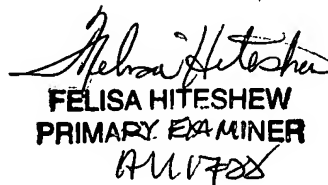 Felisa Hiteshew
FELISA HITESHEW
PRIMARY EXAMINER
AU1722